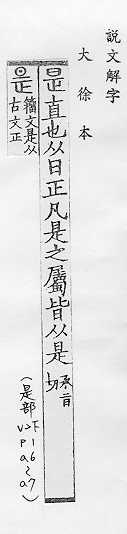 說文解字
大徐本
昰直也从日正凡是之屬皆从是 承旨切
籒文是从
古文正
（是部 V2下
P16
a6~a7）